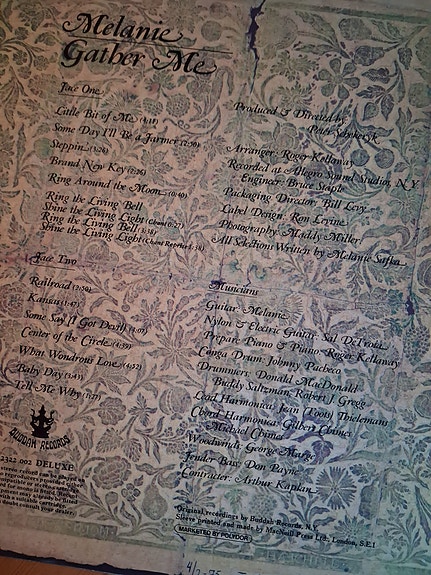 Melanie
Gather Me
Face One
Little Bit of Me (4:11)
Some Day I'll Be a Farmer (2:50)
Steppin (3:26)
Brand New Key (2:26)
Ring Around the Moon (0:40)
Ring the Living Bell
Shine the Living Light (Chant 0:27)
Ring the Living Bell (3:38)
Shine the Living Light (Chant Reprise 1:38)
Face Two
Railroad (2:50)
Kansas (1:47)
Some Say (I Got Devil) (3:09)
Center of the Circle (4:33)
What Wondrous Love (4:32)
Baby Day (3:41)
Tell Me Why
BUDDAH RECORDS
2322 002 DELUXE
Produced & Directed by:
Peter Schekeryk
Arranger: Roger Kellaway
Recorded at Allegro Sound Studios, N.Y.
Engineer: Bruce Staple
Packaging Director: Bill Levy
Label Design: Ron Levine
Photography: Maddy Miller
All Selections Written by Melanie Safka
Musicians
Guitar: Melanie
Nylon & Electric Guitar: Sal DeTroia
Prepare Piano & Piano: Roger Kellaway
Conga Drum: Johnny Pacheco
Drummers: Donald MacDonald
Buddy Saltzman, Robert J. Gregg
Lead Harmonica: Jean (Toots) Thielemans
Chord Harmonica: Gilbert Chimes
Michael Chimes
Woodwinds: George Marge
Fender Bass: Don Payne
Contractor: Arthur Kaplan
Original recordings by Buddah Records, N.Y.
Sleeve printed and made by MacNeill Press Ltd., London, S.E.1
MARKETED BY POLYDOR